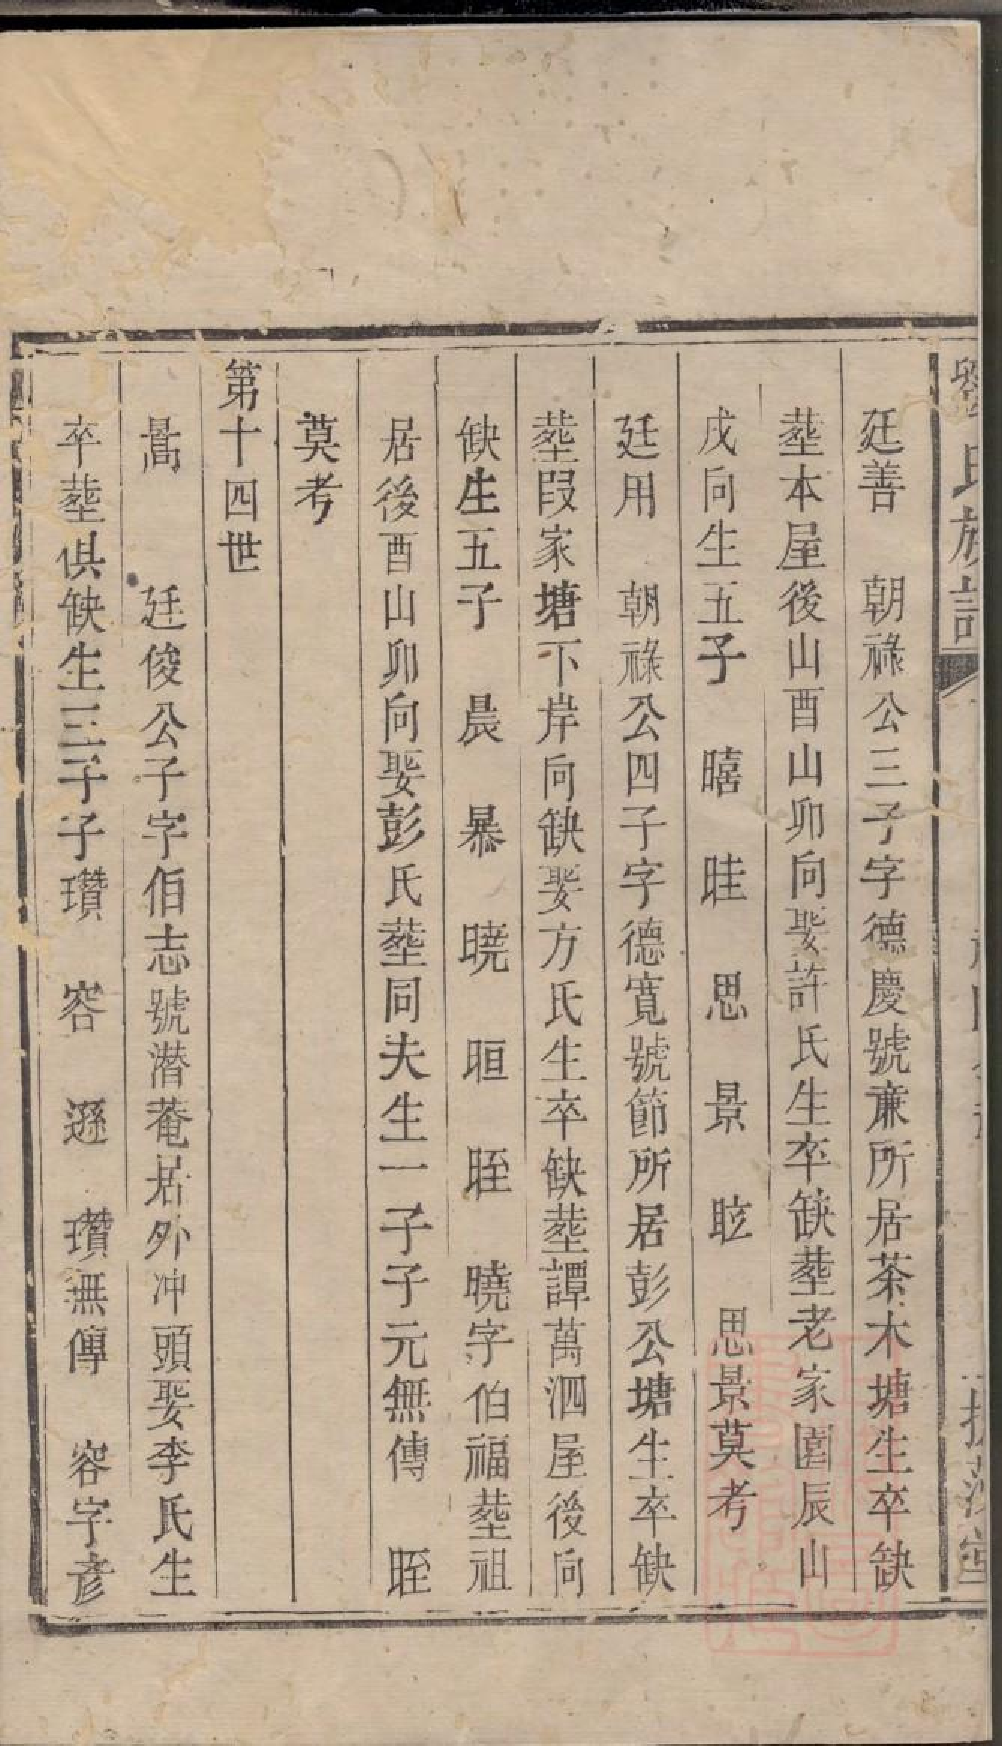 劉氏族譜
廷善 朝祿公三子字德慶號亷所居茶木塘生卒缺
塟本屋後山酉山卯向娶許氏生卒缺塟老家園辰山
戌向生五子 暿 眭 思 景 昡 思景莫考
廷用 朝祿公四子字德寬號節所居彭公塘生卒缺
塟叚家塘下岸向缺娶方氏生卒缺塟譚萬泗屋後向
缺生五子 晨 暴 曉 晅 晊 曉字伯福塟祖
居後酉山卯向娶彭氏塟同夫生一子子元無傳 晊
莫考
第十四世
暠 廷俊公子字佰志號潛菴居外冲頭娶李氏生
卒塟俱缺生三子子瓚 容 遜 瓚無傳 容字彥